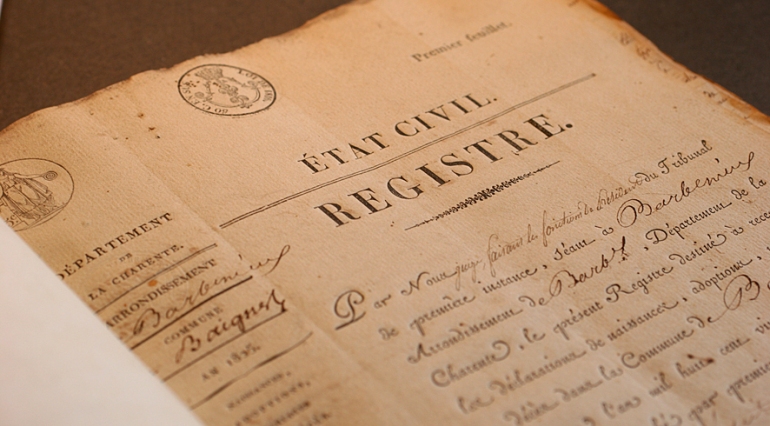 Premier feuillet.
ÉTAT CIVIL.
REGISTRE.
DÉPARTEMENT
DE
LA CHARENTE.
ARRONDISSEMENT
Barbezieux
COMMUNE
Baignes
AN 182
Par Nous juge, faisant les fonctions de Président du Tribunal
de première instance, séant à Barbezieux
Arrondissement de Barbx, Département de la
Charente, le présent Registre destiné à rece
les déclarations de naissance, adoptions,
décès dans la Commune de B
de l'an mil huit cent vin
par premie